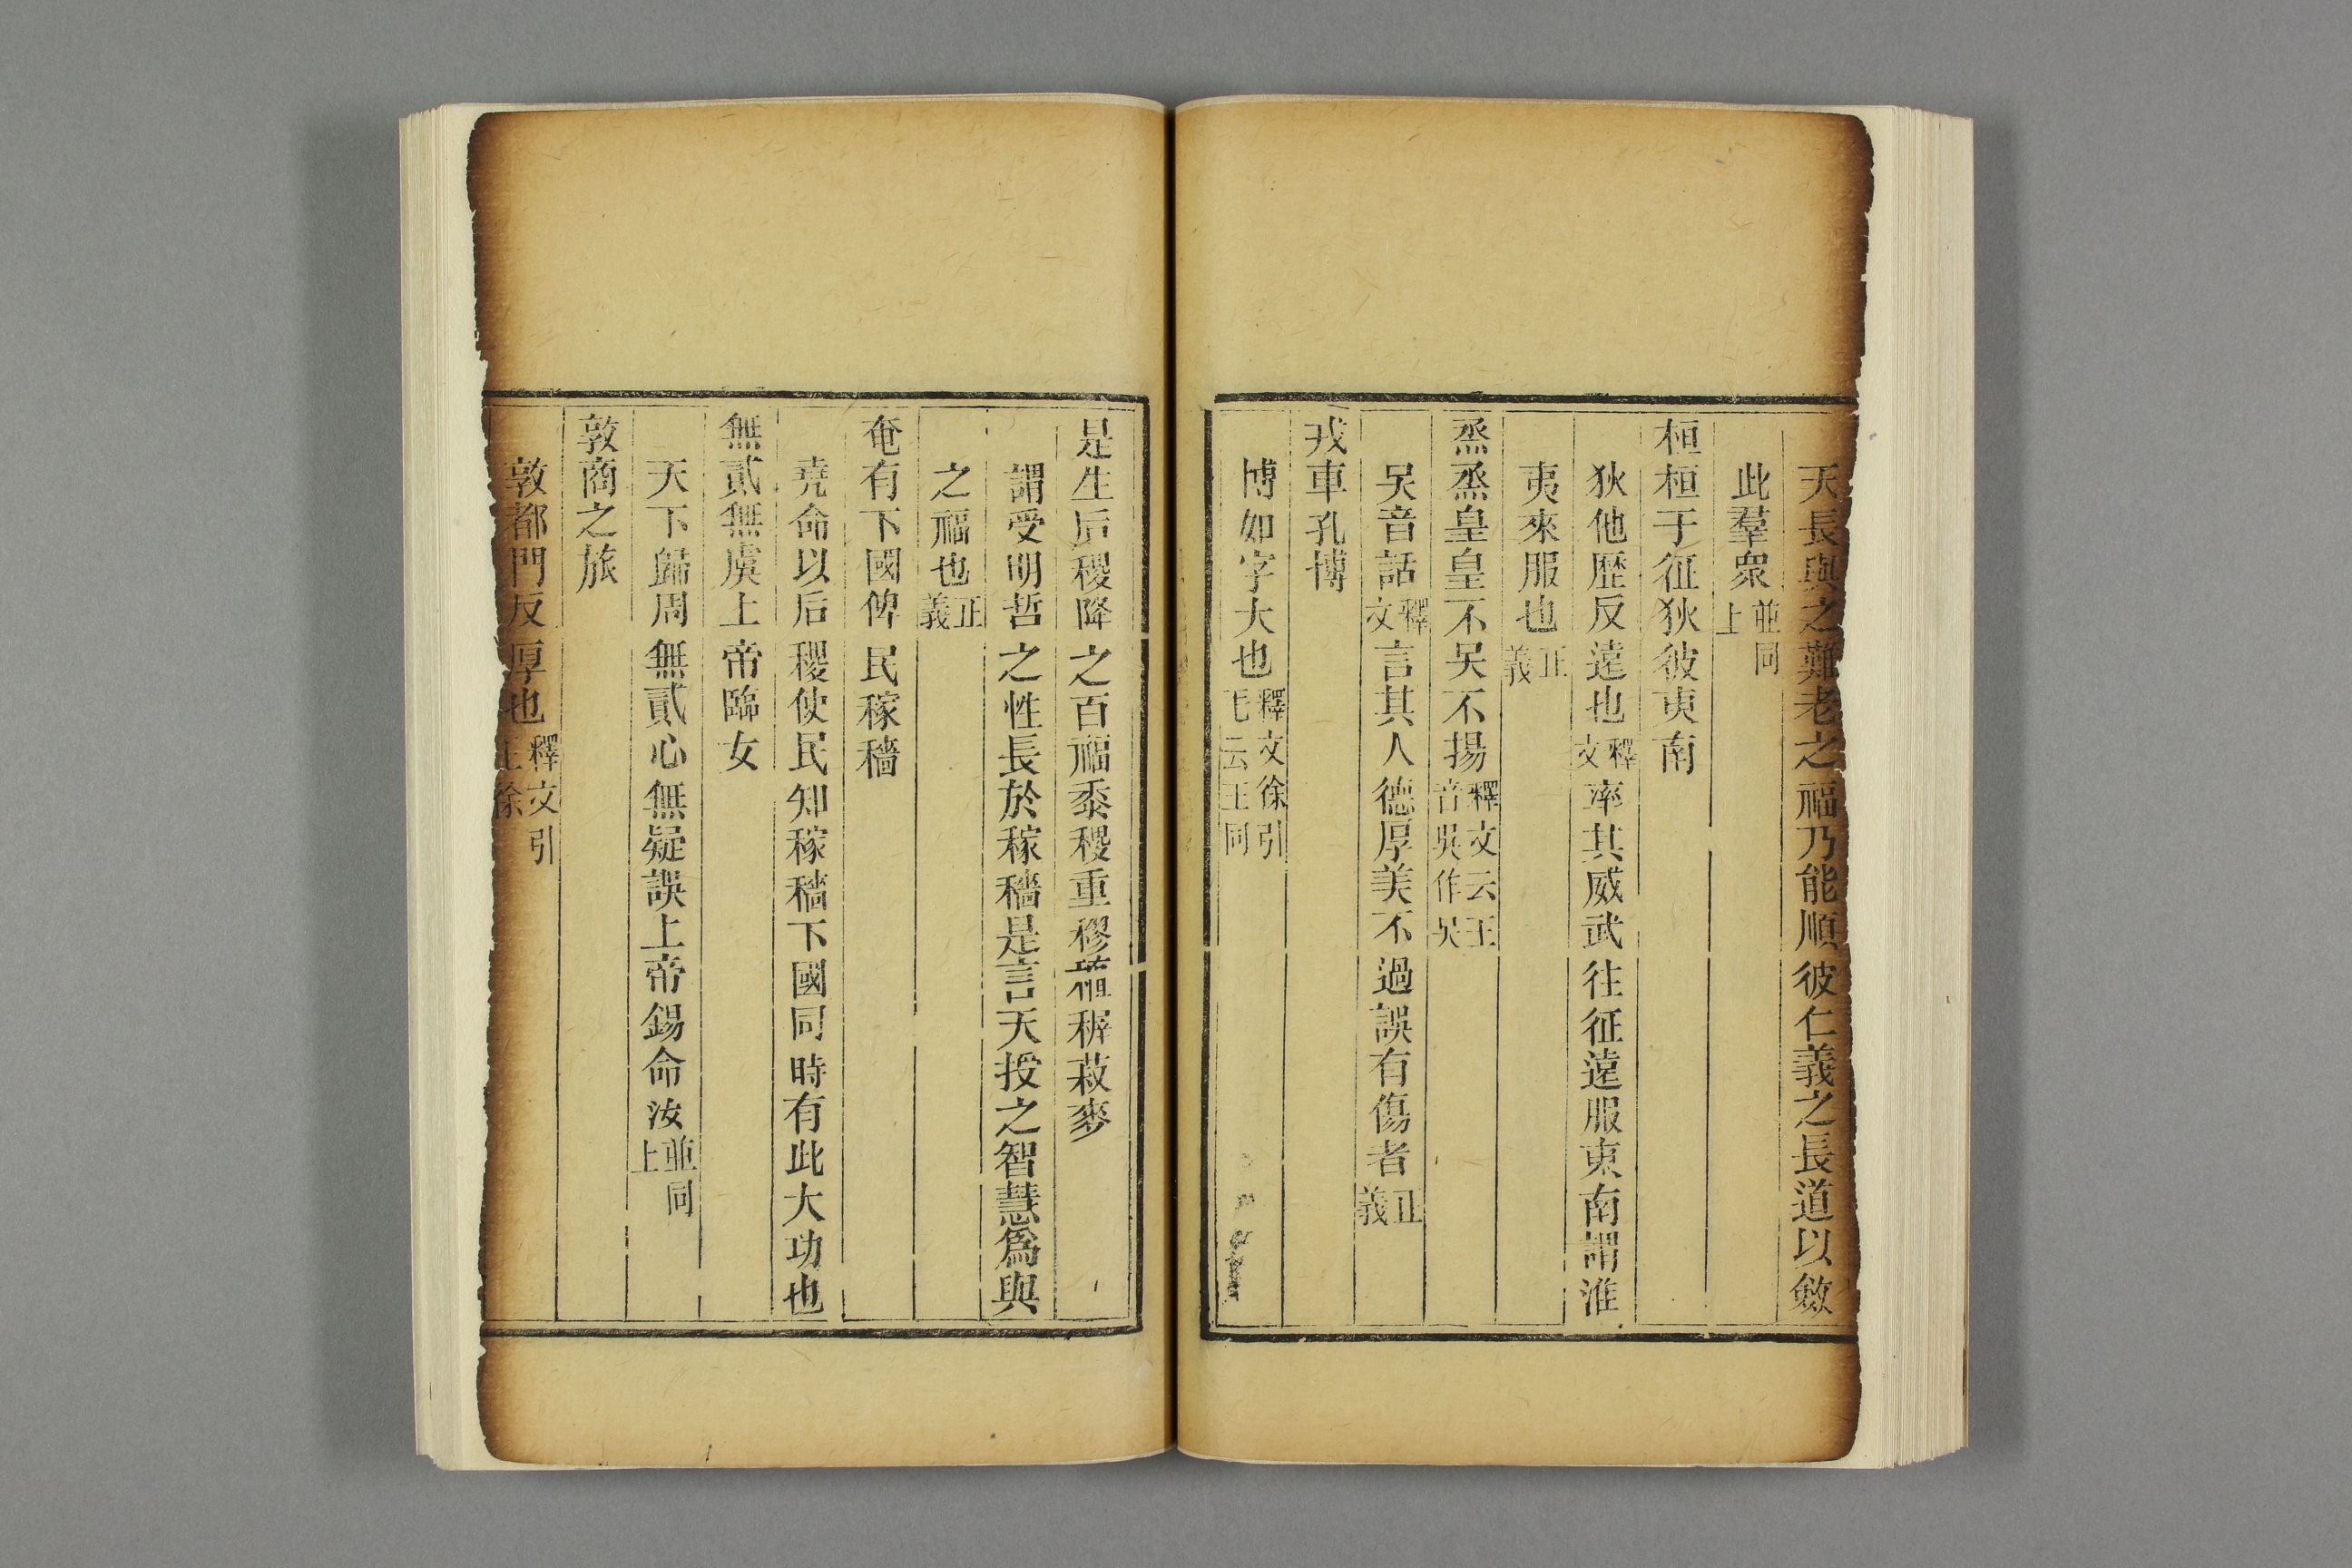 天長與之難老之福乃能順彼仁義之長道以斂
此羣衆並同上
桓桓于征狄彼東南
狄他歷反遠也釋文率其威武往征遠服東南謂淮
夷來服也正義
烝烝皇皇不吳不揚釋文云王音吳作吳
吳音話釋文言其人德厚美不過誤有傷者正義
戎車孔博
博如字大也釋文徐引毛云王同
是生后稷降之百福黍稷重穋稙稺菽麥
謂受明哲之性長於稼穡是言天授之智慧爲與
之福也正義
奄有下國俾民稼穡
堯命以后稷使民知稼穡下國同時有此大功也
無貳無虞上帝臨女
天下歸周無貳心無疑誤上帝錫命汝並同上
敦商之旅
敦都門反厚也釋文引王徐